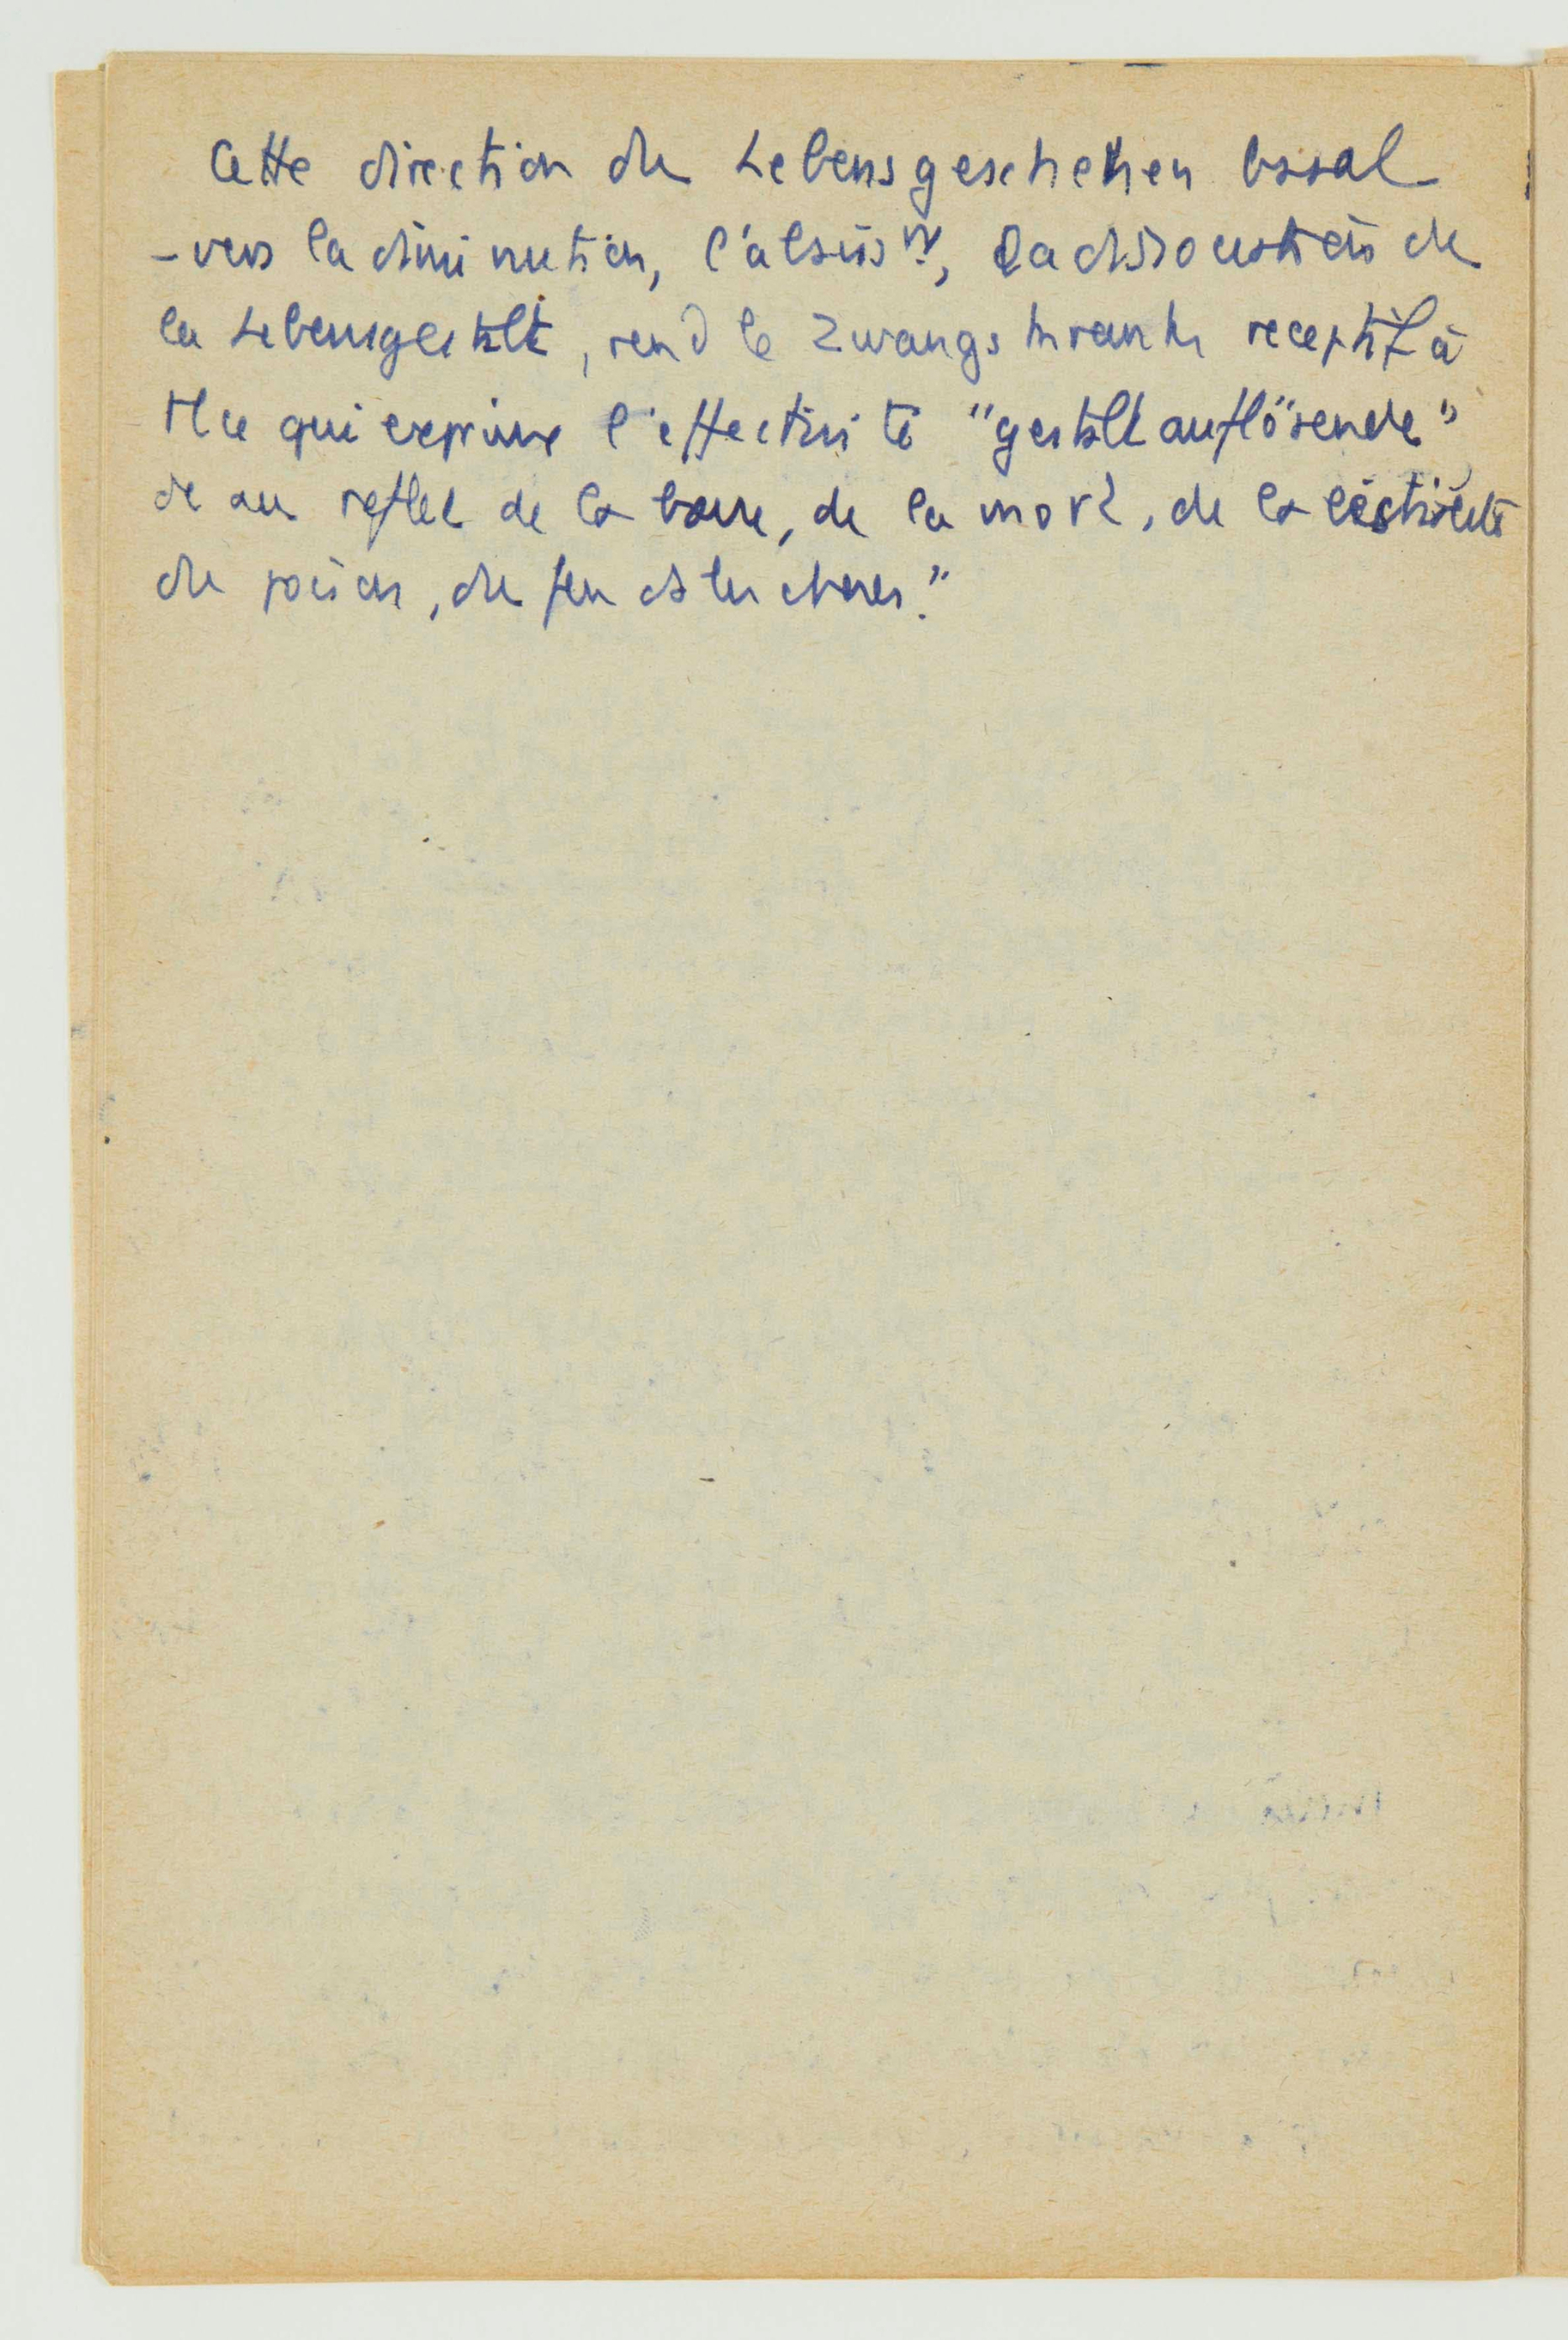 Cette direction du Lebensgeschehen basal
- vers la diminution, , la dissolution de
la Lebensgestalt, rend le Zwangskranke receptif à
tt ce qui exprime l'effectivité "gestaltauflösende"
de au reflet de la boue, de la mort, de la
du poison, du feu ds les choses."